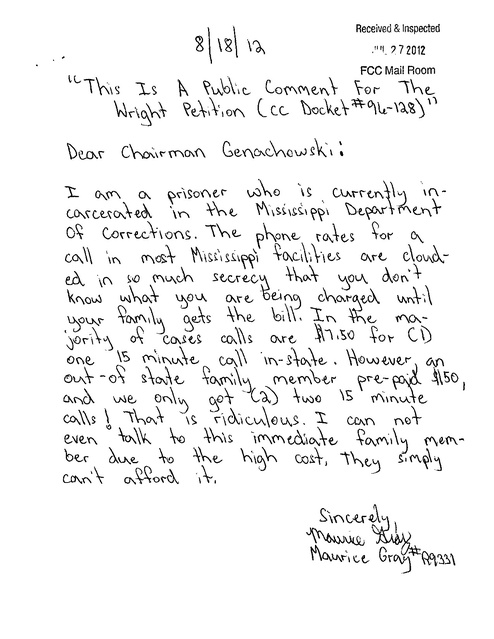 8/18/12
Received & Inspected
JUL 27 2012
FCC Mail Room
"This Is A Public Comment For The
Wright Petition (CC Docket #96-128)"
Dear Chairman Genachowski:
I am a prisoner who is currently in-
carcerated in the Mississippi Department
Of Corrections. The phone rates for a
call in most Mississippi facilities are cloud-
ed in so much secrecy that you don't
know what you are being charged until
your family gets the bill. In the ma-
jority of cases calls are $7.50 for (1)
one 15 minute call in-state. However, an
out-of state family member pre-paid $150,
and we only got (2) two 15 minute
calls! That is ridiculous. I can not
even talk to this immediate family mem-
ber due to the high cost. They simply
can't afford it.
Sincerely,
Maurice Gray
Maurice Gray #R9331